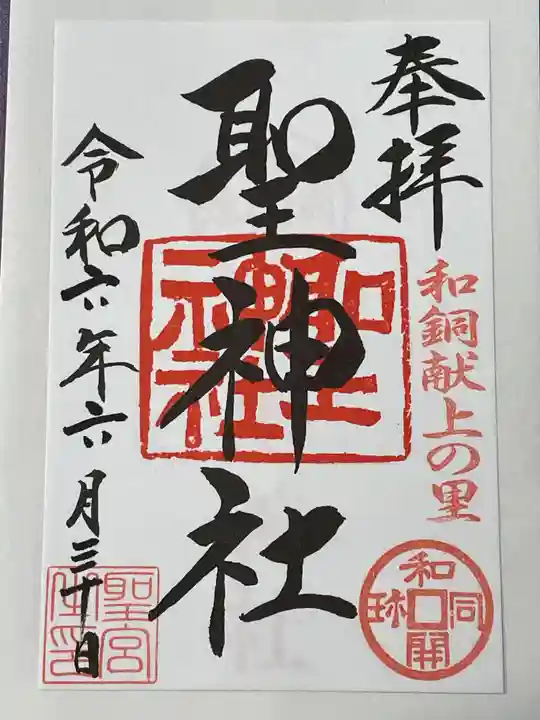 奉拝
和銅献上の里
和同開珎
聖神社
聖神社
令和六年六月三十日
聖宮